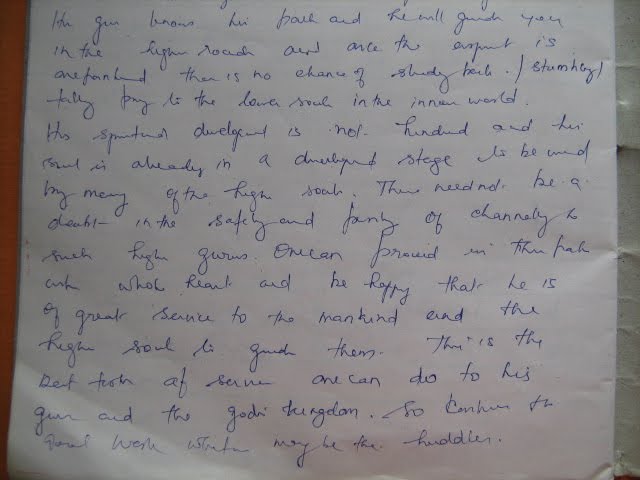 His guru knows his path and he will guide you
in the higher roads and once the aspirant is
there is no chance of steady back. / stumbling /
falling prey to the lower souls in the inner world.
His spiritual development is not hindered and his
soul is already in a development stage to be used
by many of the high souls. There need not be a
doubt in the safety and purity of channeling to
such high gurus. One can proceed in this path
with whole heart and be happy that he is
of great service to the mankind and the
higher souls to guide them. This is the
best form of service one can do to his
guru and the gods kingdom. So continue the
good work whatever may be the huddles.